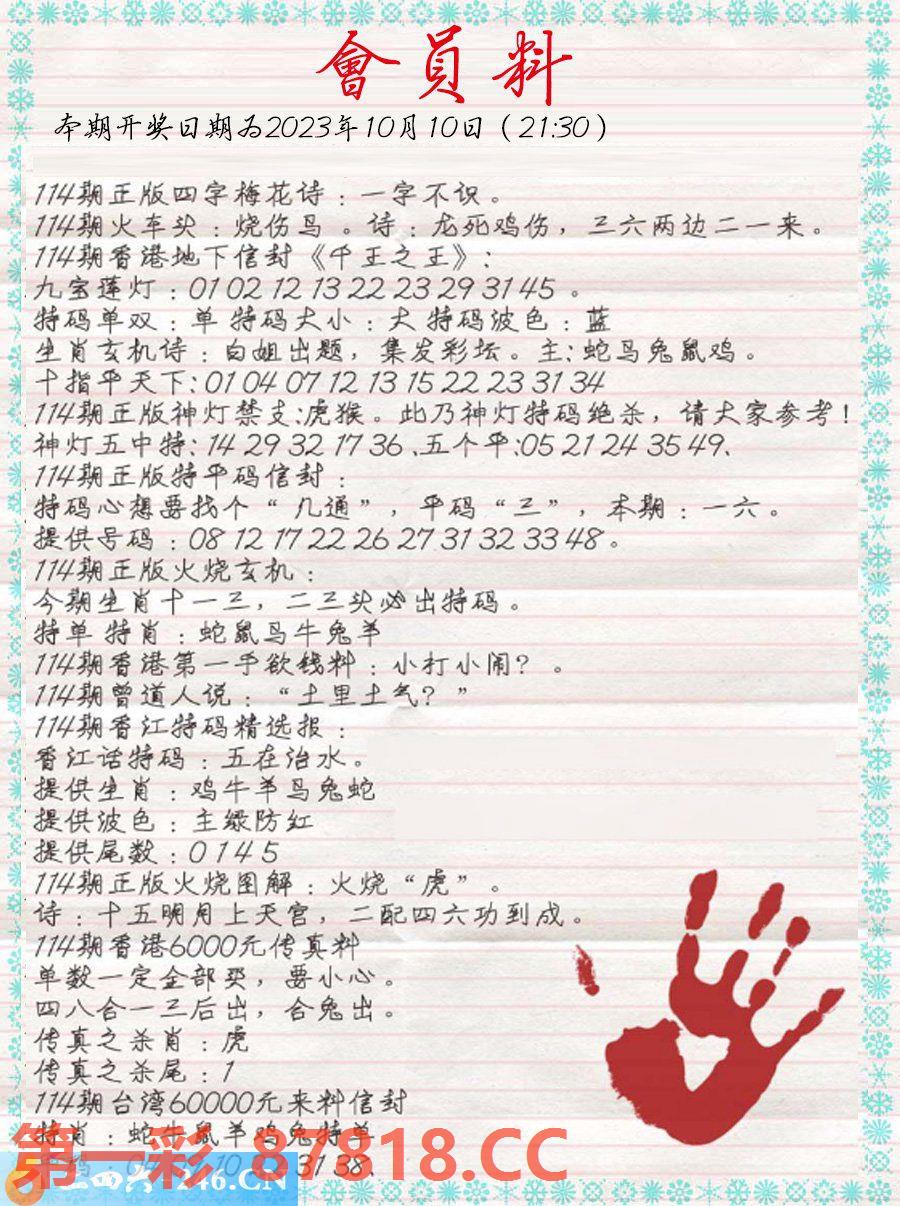 會員料
本期开奖日期为2023年10月10日（21:30）
114期正版四字梅花诗：一字不识。
114期火车头：烧伤鸟 。诗：龙死鸡伤，三六两边二一来。
114期香港地下信封《千王之王》:
九宝莲灯：01 02 12 13 22 23 29 31 45 。
特码单双：单 特码大小：大 特码波色：蓝
生肖玄机诗：白姐出题，集发彩坛。主:蛇马兔鼠鸡。
十指平天下:01 04 07 12 13 15 22 23 31 34
114期正版神灯禁支:虎猴。此乃神灯特码绝杀，请大家参考！
神灯五中特:14 29 32 17 36 .五个平:05 21 24 35 49.
114期正版特平码信封：
特码心想要找个“几通”，平码“三”，本期：一六。
提供号码：08 12 17 22 26 27 31 32 33 48。
114期正版火烧玄机：
今期生肖十一三，二三头必出特码。
特单 特肖：蛇鼠马牛兔羊
114期香港第一手欲钱料：小打小闹？。
114期曾道人说：“土里土气？”
114期香江特码精选报：
香江话特码：五在治水。
提供生肖：鸡牛羊马兔蛇
提供波色：主绿防红
提供尾数：0 1 4 5
114期正版火烧图解：火烧“虎”。
诗：十五明月上天宫，二配四六功到成。
114期香港6000元传真料
单数一定全部买，要小心。
四八合一三后出，合兔出。
传真之杀肖：虎
传真之杀尾：1
114期台湾60000元来料信封
特肖：蛇牛鼠羊鸡兔特单
第一彩 87818.CC
10 31 38
二四六 246.CN